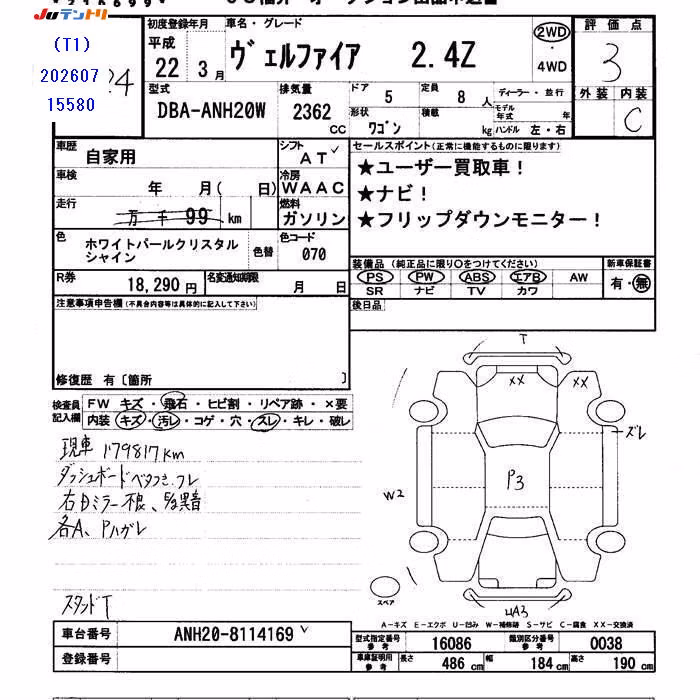 JUテントリ
(T1)
202607
15580
24
初度登録年月
平成
22年 3月
車名・グレード
ヴェルファイア 2.4Z
2WD
4WD
評価点
3
外装 内装
C
型式
DBA-ANH20W
排気量
2362
CC
ドア
5
定員
8 人
形状
ワゴン
積載
kg
ディーラー・並行
モデル年式 年
ハンドル 左・右
車歴
自家用
シフト
AT
車検
年 月( 日)
冷房
WAAC
走行
万 千 99 km
燃料
ガソリン
色
ホワイトパールクリスタル
シャイン
色替
色コード
070
R券
18,290 円
名変通知期限
月 日
セールスポイント(正常に機能するものに限ります)
★ユーザー買取車！
★ナビ！
★フリップダウンモニター！
装備品(純正品に限り○をつけてください)
PS PW ABS エアB AW
SR ナビ TV カワ
新車保証書
有・無
後日品
注意事項申告欄(不具合内容等は具体的に記入して下さい)
修復歴 有〔箇所 〕
検査員記入欄
FW キズ・飛石・ヒビ割・リペア跡・×要
内装 キズ・汚レ・コゲ・穴・スレ・キレ・破レ
現車 179817km
ダッシュボードベタつき、フレ
右Dミラー不良、E/g異音
各A、Pハガレ
スタッドT
T
XX XX
ズレ
W2
P3
スペア
UA3
A－キズ E－エクボ U－凹み W－補修跡 S－サビ C－腐食 XX－交換済
車台番号
ANH20-8114169
登録番号
型式指定番号 参考
16086
類別区分番号 参考
0038
車庫証明用 参考
長さ 486 cm
幅 184 cm
高さ 190 cm